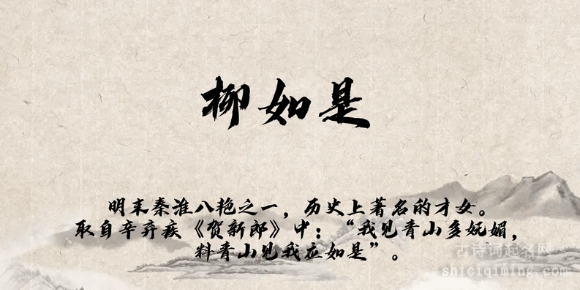 柳如是
明末秦淮八艳之一，历史上著名的才女。
取自辛弃疾《贺新郎》中：“我见青山多妩媚，
料青山见我应如是”。
古诗词起名网
shiciqiming.com